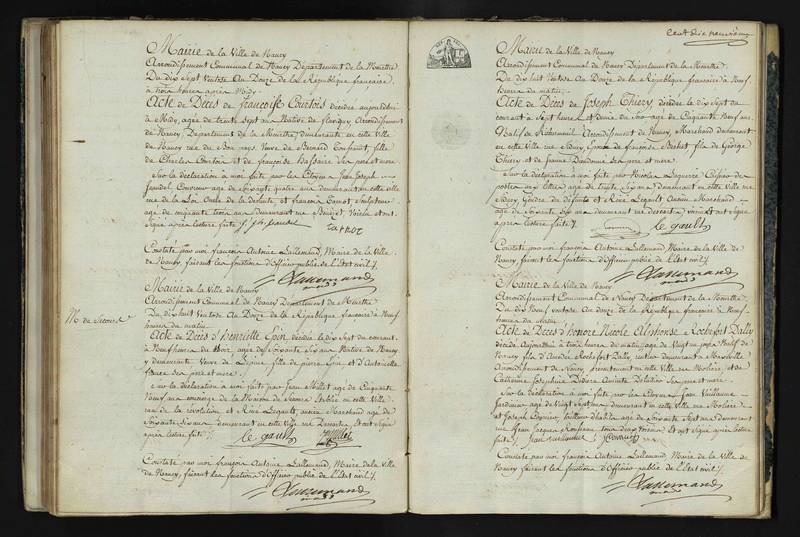 Mairie de la Ville de Nancy
Arrondissement Communal de Nancy Département de la Meurthe
Du dix Sept Ventose An Douze de la République française,
à trois heures après Midy
Acte de Décès de françoise Courtois décédée aujourdhui
à Midy, agée de trente Sept ans Native de flavigny Arrondissement
de Nancy Département de la Meurthe, demeurante en cette Ville
de Nancy rue du bon pays Veuve de Bernard Toussaint, fille
de Charles Courtois et de françoise ses pere et mere
Sur la déclaration à moi faite par les Citoyens Jean Joseph
agé de Soixante quatre ans demeurant en cette ville
rue de la Loi Oncle de la defunte, et françois Sculpteur
agé de cinquante trois ans demeurant rue Voisin et ont
Signé après lecture faite
Constaté par moi françois Antoine Lallemand, Maire de la Ville
de Nancy, faisant les fonctions d'Officier public de l'Etat civil
Lallemand
M. de Secours
Mairie de la Ville de Nancy
Arrondissement Communal de Nancy Departement de la Meurthe
Du dix huit Ventose An Douze de la République française à Neuf
heures du matin
Acte de Décès d'henriette Epin décédée le dix Sept du courant
à Neuf heures du Soir, agée de Soixante Six ans Native de Nancy
y demeurante Veuve de Lepine, fille de pierre Epin, et d'Antoinette
ses pere et mere
Sur la déclaration à moi faite par Jean Millet agé de Cinquante
ans concierge de la Maison de Secours établie en cette Ville
rue de la révolution et René Legault, ancien Marchand agé de
Soixante Six ans demeurant en cette Ville rue et ont Signé
après lecture faite
le gault millet
Constaté par moi françois Antoine Lallemand, Maire de la Ville
de Nancy, faisant les fonctions d'Officier public de l'Etat civil
Lallemand
Cent dix neuvieme
Mairie de la Ville de Nancy
Arrondissement Communal de Nancy Département de la Meurthe
Du dix huit Ventose An Douze de la République française à Neuf
heures du matin
Acte de Décès de Joseph Thiery, décédé le dix Sept du
courant à Sept heures et demie du Soir agé de Cinquante Neuf ans
Natif de Arrondissement de Nancy, Marchand demeurant
en cette Ville rue Epoux de françoise fils de George
Thiery et de Jeanne ses pere et mere
Sur la déclaration à moi faite par Nicolas
agé de trente Six ans demeurant en cette Ville rue
Gendre du défunt et René Legault Ancien Marchand
agé de Soixante Six ans demeurant rue voisin et ont Signé
après lecture faite
le gault
Constaté par moi françois Antoine Lallemand Maire de la Ville de
Nancy faisant les fonctions d'Officier public de l'Etat civil
Lallemand
Mairie de la Ville de Nancy
Arrondissement Communal de Nancy Département de la Meurthe
Du dix Neuf Ventose An Douze de la République française à Neuf
heures du Matin
Acte de Décès d'honoré Nicole Alphonse Rochefort Dally
décédé Aujourdhui à trois heures du matin, agé de Vingt un jours Natif de
Nancy fils d'Amédée Rochefort Dally, rentier demeurant à
Arrondissement de Nancy, en cette Ville rue Moliere, et de
Catherine Josephine ses pere et mere
Sur la déclaration à moi faite par les Citoyens Jean Vuillaume
Jardinier agé de Vingt Sept ans demeurant en cette Ville rue Moliere
et Joseph tailleur d'habits agé de Soixante Sept ans demeurant
rue Jean Jacques Rousseau tous deux voisins Et ont Signé après lecture
faite
Jean vuillaume
Constaté par moi françois Antoine Lallemand, Maire de la Ville de
Nancy faisant les fonctions d'Officier public de l'Etat civil
Lallemand